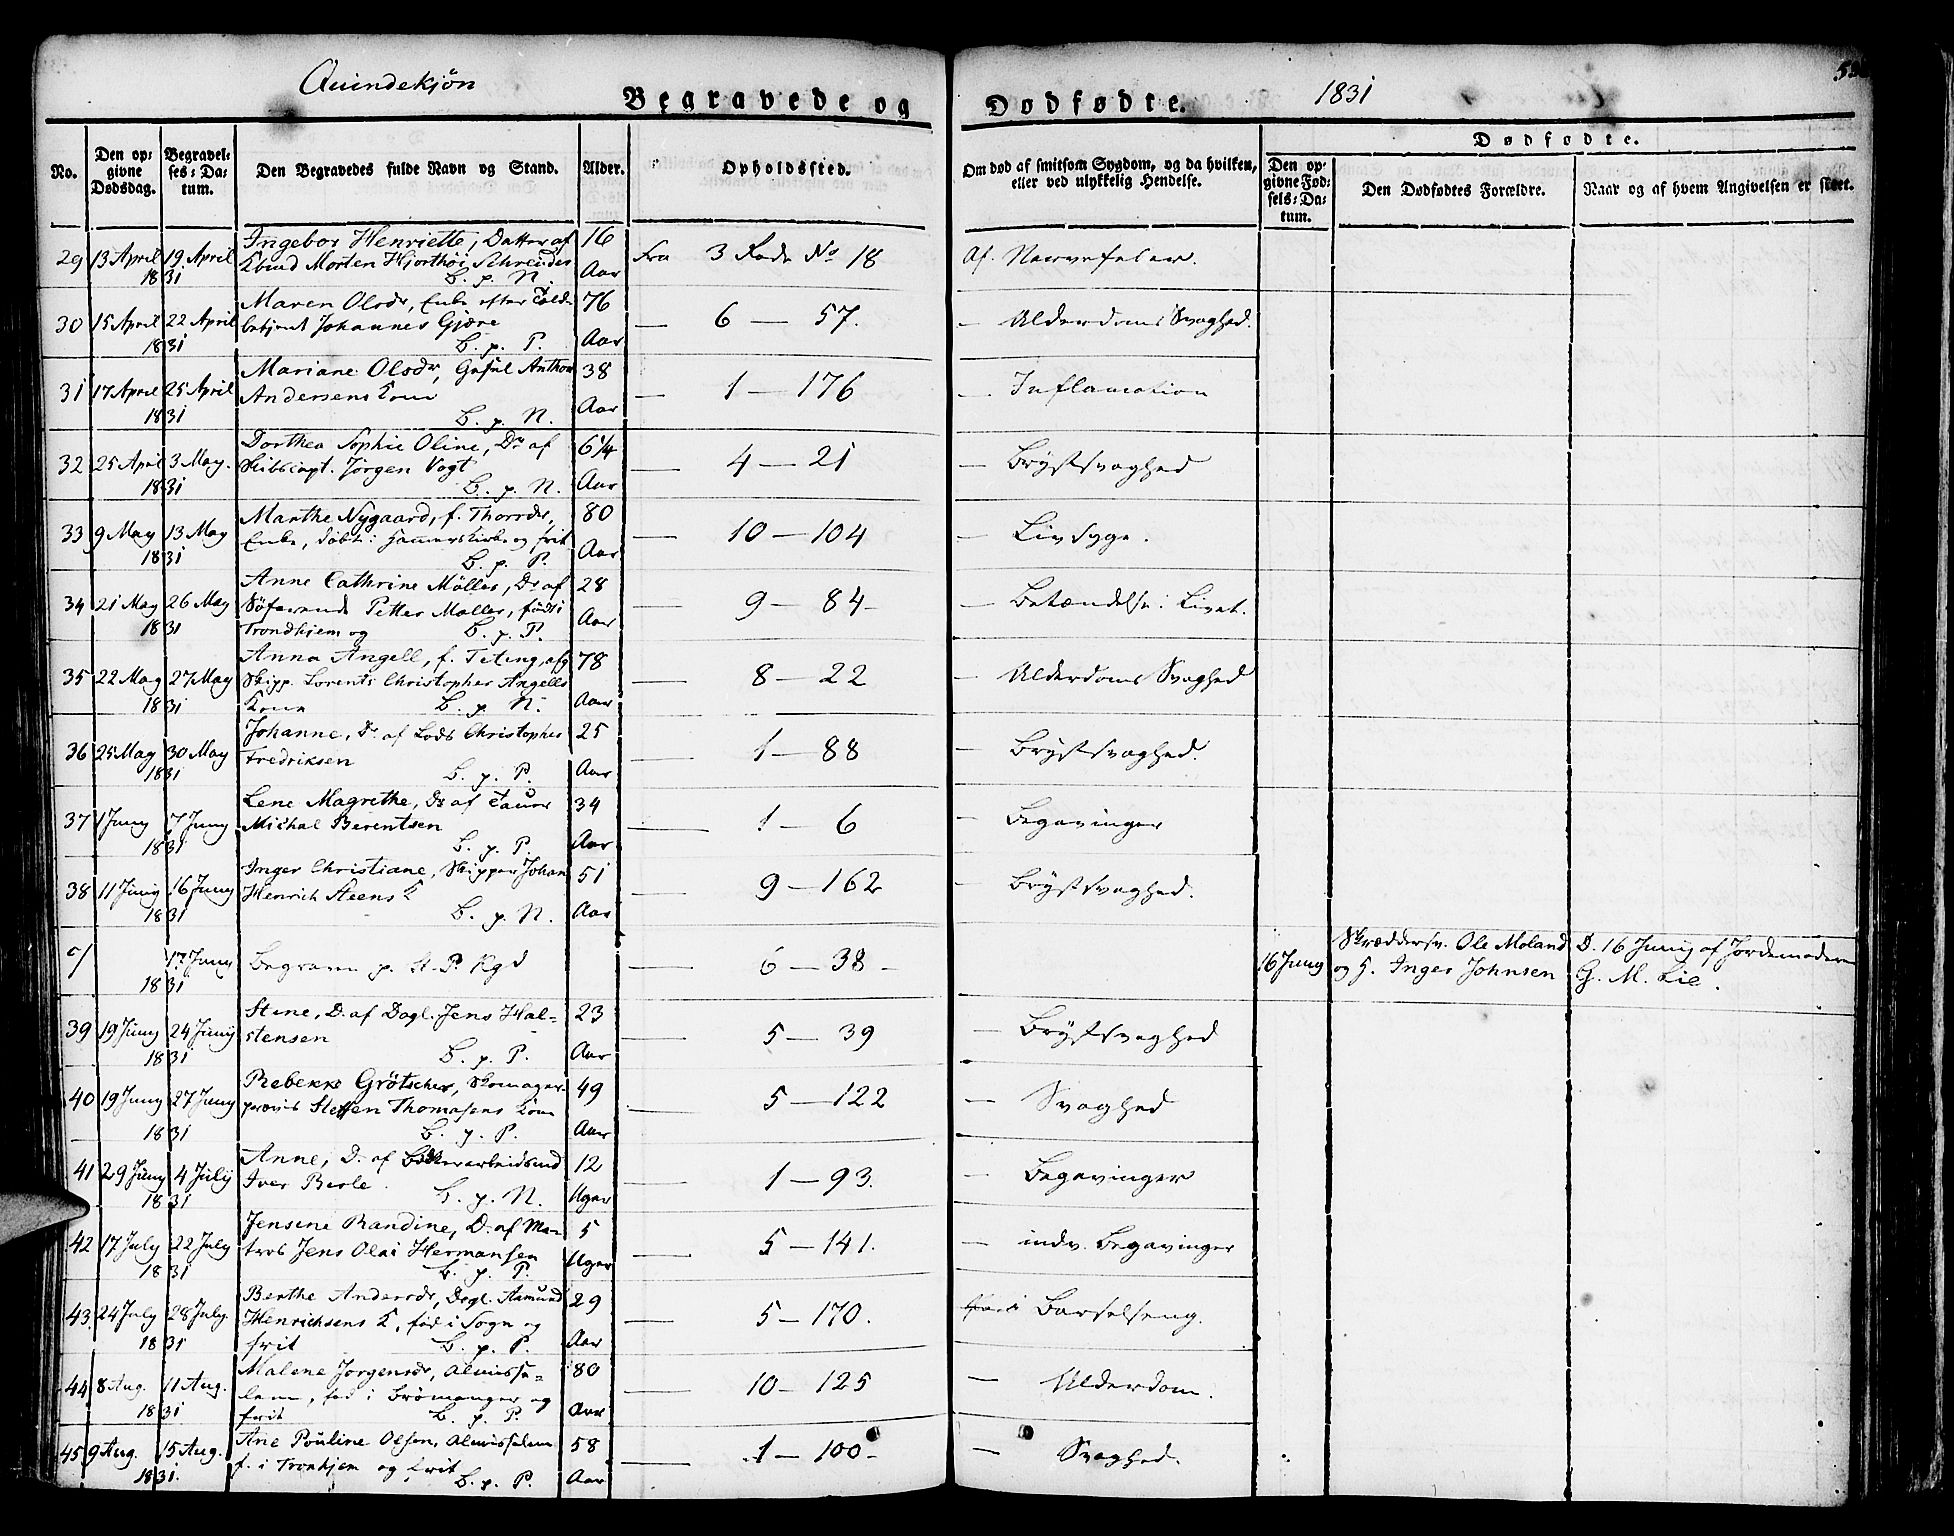 Quindekjön
Begravede og
Dødfødte.
1831
No.
Den op-
givne
Dødsdag.
Begravel-
ses-Da-
tum.
Den Begravedes fulde Navn og Stand.
Alder.
Opholdssted.
Om død af smitsom Sygdom, og da hvilken,
eller ved ulykkelig Hendelse.
Dødfødte.
Den op-
givne Fød-
sels-Da-
tum.
Den Dødfødtes Forældre.
Naar og af hvem Angivelsen er skeet.
29 13 April 19 April Ingebor Henriette, Datter af 16 Fra 3 Rode No 18 Af Nervefeber.
1831 Morten Hjorthöi Schreuder Aar
B. p. N.
30 15 April 22 April Maren Olsdr, Enke efter Told- 76 — 6 — 57. — Alderdoms Svaghed.
1831 betjent Johannes Gjære Aar
B. p. P.
31 17 April 25 April Mariane Olsdr, Anthon 38 — 1 — 176 — Inflamation
1831 Andersens Kone Aar
B. p. N.
32 25 April 3 May. Dorthea Sophie Oline, Dr af 6 1/4 — 4 — 21 — Brystsvaghed
1831 Skibscapt. Jörgen Vogt Aar
B. p. N.
33 9 May 13 May Marthe Nygaard, f. Thorsdr, 80 — 10 — 104 — Livsyge.
1831 Enke, og frit Aar
B. p. P.
34 21 May 26 May Anne Cathrine Möller, Dr af 28 — 9 — 84 — — Betændelse i Livet.
1831 Söfarende Petter Möller, född i Aar
Trondhjem og B. p. P.
35 22 May 27 May Anna Angell, f. Teting, afg 78 — 8 — 22 — Alderdoms Svaghed
1831 Skipp. Lorents Christopher Angells
Kone B. p. N. Aar
36 25 May 30 May Johanne, Dr af Lods Christopher 25 — 1 — 88 — Brystsvaghed.
1831 Fredriksen
B. p. P. Aar
37 1 Juny 7 Juny Lene Magrethe, Dr af 34 — 1 — 6 — Begavinger
1831 Michal Berentsen
B. p. P. Aar
38 11 Juny 16 Juny Inger Christiane, Skipper Johan 51 — 9 — 162 — Brystsvaghed.
1831 Henrich Steens K
B. p. N. Aar
17 Juny Begraven p. St. P. Kgd — 6 — 38 — 16 Juny Skræddersv. Ole Moland D. 16 Juny af Jordemoderen
1831 og H. Inger Johnsen G. M. Lie.
39 19 Juny 24 Juny Stine, D. af Dagl. Jens Hal- 23 — 5 — 39 — Brystsvaghed
1831 stensen
B. p. P. Aar
40 19 Juny 27 Juny Rebekka Grötscher, Skomager- 49 — 5 — 122 — Svaghed
1831 Steffen Thomasens Kone
B. p. P. Aar
41 29 Juny 4 July Anne, D. af 12 — 1 — 93. — Begavinger
1831 Iver Berle. B. p. N. Uger
42 17 July 22 July Jensine Randine, D. af Ma- 5 — 5 — 141. — indv. Begavinger
1831 tros Jens Olai Hermansen Uger
B. p. P.
43. 24 July 28 July. Berthe Andersdr, Dagl. Aamund 29 — 5 — 170. Barselseng.
1831 Henrichsens K, fød i Sogn og
frit B. p. P. Aar
44 8 Aug. 11 Aug. Malene Jorgensdr, Almisse- 80 — 10 — 125 — Alderdom.
1831 lem, fød i Brömanger og
frit B. p. P. Aar
45 9 Aug. 15 Aug. Ane Pouline Olsen, Almisselem 58 — 1 — 100 — — Svaghed.
1831. f. i Tronhjem og frit B. p. P. Aar